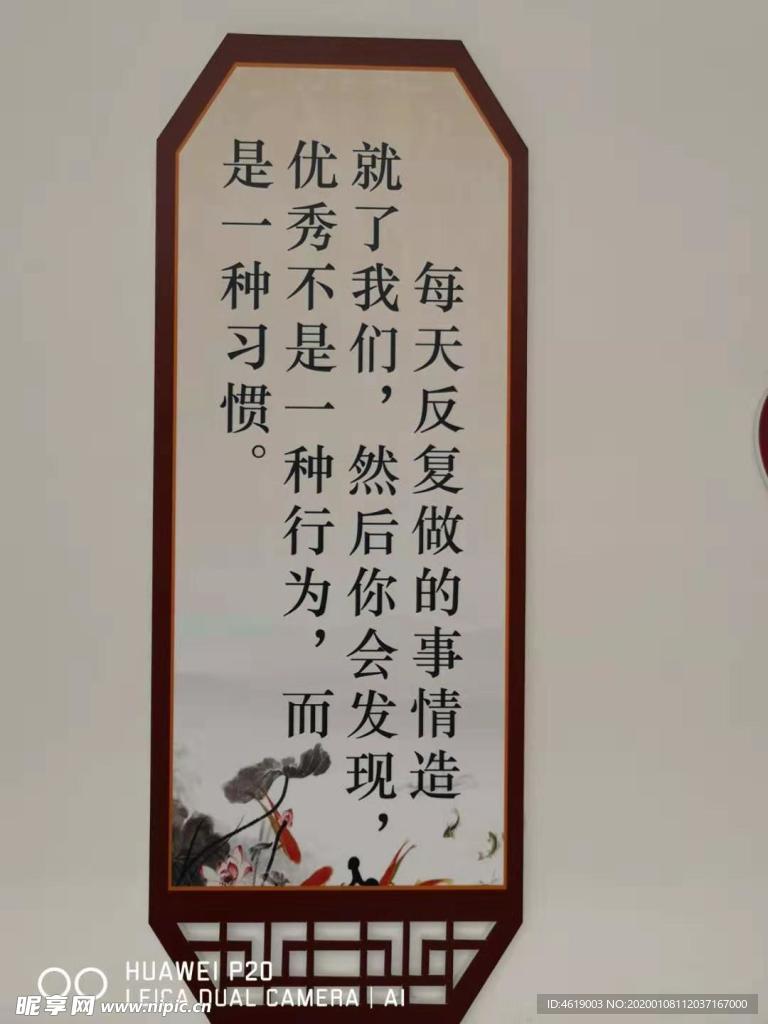 每天反复做的事情造
就了我们，然后你会发现，
优秀不是一种行为，而
是一种习惯。
HUAWEI P20
LEICA DUAL CAMERA | AI
昵享网 www.nipic.cn
ID:4619003 NO:20200108112037167000